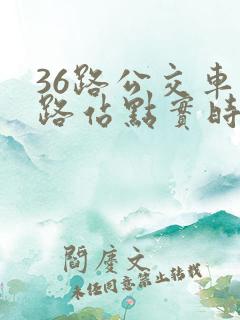 36路公交車
路佔點實時
閻慶文
未任同意禁止転載